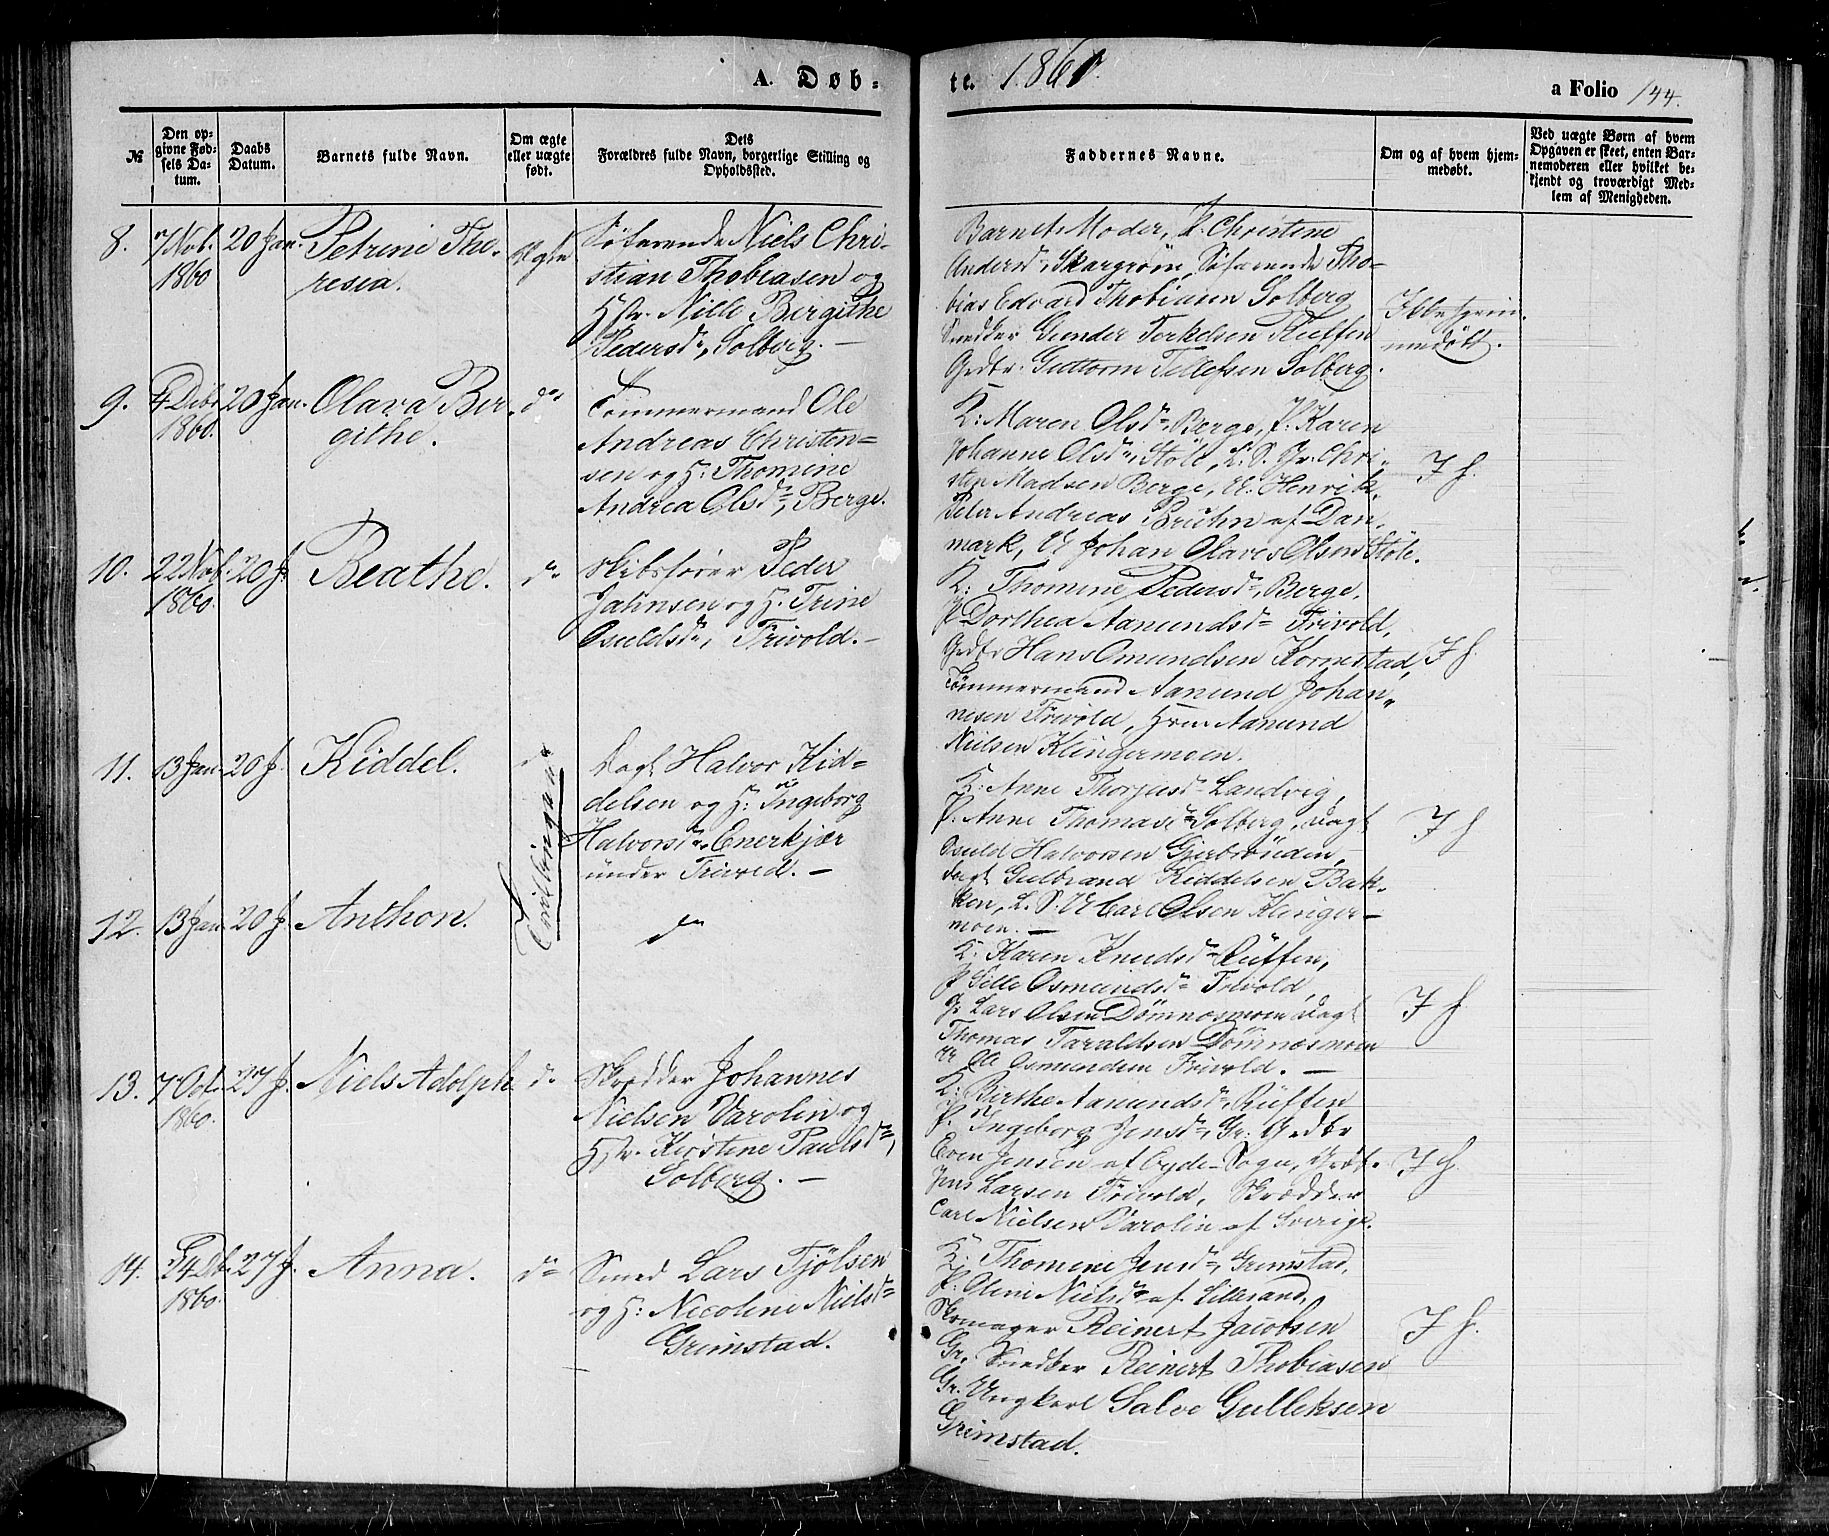 A. Døb-
te. 1861.
a Folio 144.
№
Den op-
givne Fød-
sels Da-
tum.
Daabs
Datum.
Barnets fulde Navn.
Om ægte
eller uægte
født.
Dets
Forældres fulde Navn, borgerlige Stilling og
Opholdssted.
Faddernes Navne.
Om og af hvem hjem-
medøbt.
Ved uægte Børn af hvem
Opgaven er skeet, enten Bar-
nemoderen eller hvilket be-
kjendt og troværdigt Med-
lem af Menigheden.
8. 7 Nov. 1860 20 Jan. Petrine The-
resia.
Ægte
Søfarende Niels Chri-
stian Thobiasen og
Hstr. Nille Birgithe
Pedersdr, Solberg. —
Barnets Moder, P. Christine
Andersdr Skargrøm, Søfarende Tho-
bias Edvard Thobiasen Solberg
Snedker Gunder Terkelsen Rüffen
Grdbr. Guttorm Tellefsen Solberg.
Ikke hjem-
medöbt.
9. 4 Debr 1860. 20 Jan. Olava Bir-
githe.
do
Tömmermand Ole
Andreas Christen-
sen og H. Thomine
Andrea Olsdr, Berge.
K: Maren Olsdr Berge, P. Karen
Johanne Olsdr, Støle, L. S. Jr. Chri-
sten Madsen Berge, U. Henrik
Peter Andreas Bruhn af Dan-
mark, U Johan Olaves Olsen Støle.
I h.
10. 22 Nov. 1860. 20 J. Beathe.
do
Skibsfører Peder
Jahnsen og H. Trine
Osuldsdr, Frivold. —
K: Thomine Pedersdr Berge,
P Dorthea Aamundsdr Frivold,
Grdbr Hans Omundsen Kornestad,
Tömmermand Aanund Johan-
nesen Frivold, Aanund
Nielsen Klingermoen.
I h.
11. 13 Jan. 20 J. Kiddel.
do
Tvillingpar
Dagl Halvor Kid-
delsen og H. Ingeborg
Halvorsdr Enerkjær
under Frivold. —
K. Anne Thorjusdr Landvig,
P. Anne Thomasdr Solberg, Dagl
Osuld Halvorsen Gjerbrönden,
Dagl Gulbrand Kiddelsen Bak-
ken, L. S. U Carl Olsen Klinger-
moen. —
I h
12. 13 Jan 20 J. Anthon.
do
K. Karen Knudsdr Rüffen,
P Sille Osmundsdr Frivold,
G. Lars Olsen Dömnesmoen Dagl
Thomas Taraldsen Dömnesmoen
U Ole Osmundsen Frivold. —
I h
13. 7 Oct. 1860. 27 J. Niels Adolph
do
Skredder Johannes
Nielsen Varolin og
Hstr. Kirstine Paulsdr,
Solberg. —
K. Birthe Aanundsdr, Rüffen
P. Ingeborg Jensdr, Gr. Grdbr
Even Jensen af Oyde-Sogn,
Jens Larsen Frivold, Skrædder
Carl Nielsen Varolin af Sverige.
I h.
14. 24 Db. 1860. 27 J. Anna.
do
Smed Lars Tjölsen
og H. Nicoline Nielsdr
Grimstad.
K. Thomine Jensdr, Grimstad,
P. Oline Nielsdr af Lillesand,
Skomager Reinert Jacobsen
Gr. Snedker Reinert Thobiasen
Gr. Ungkarl Salve Gulleksen
Grimstad.
I h.